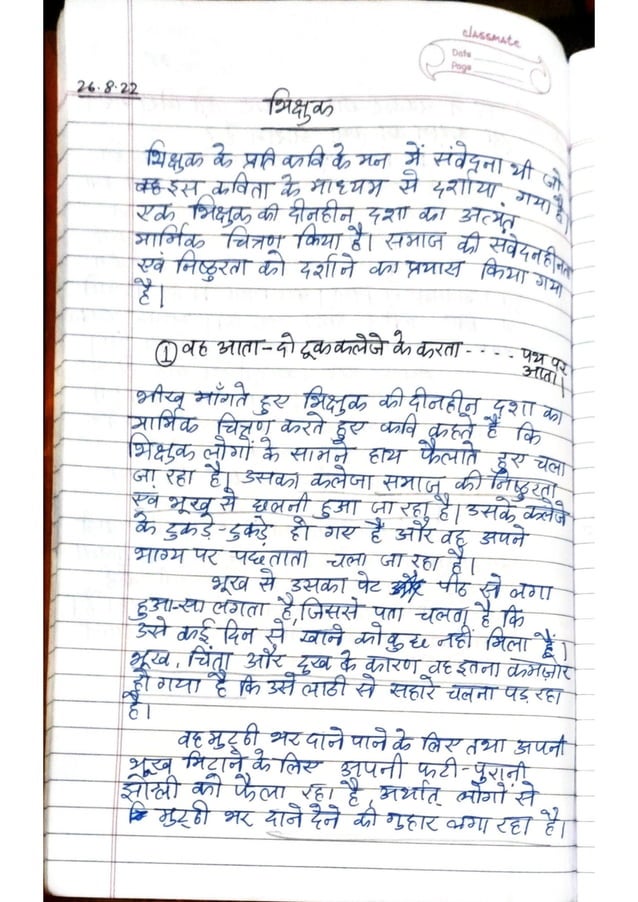 classmate
Date
Page
26.8.22
भिक्षुक
भिक्षुक के प्रति कवि के मन में संवेदना थी जो
इस कविता के माध्यम से दर्शाया गया है।
एक भिक्षुक की दीनहीन दशा का अत्यंत
मार्मिक चित्रण किया है। समाज की संवेदनहीनता
एवं निष्ठुरता को दर्शाने का प्रयास किया गया
है।
① वह आता - दो टूक कलेजे के करता .... पथ पर
आता।
भीख माँगते हुए भिक्षुक की दीनहीन दशा का
मार्मिक चित्रण करते हुए कवि कहते हैं कि
भिक्षुक लोगों के सामने हाथ फैलाते हुए चला
जा रहा है। उसका कलेजा समाज की निष्ठुरता
एवं भूख से छलनी हुआ जा रहा है। उसके कलेजे
के टुकड़े-टुकड़े हो गए हैं और वह अपने
भाग्य पर पछताता चला जा रहा है।
भूख से उसका पेट और पीठ से लगा
हुआ-सा लगता है, जिससे पता चलता है कि
उसे कई दिन से खाने को कुछ नहीं मिला है।
भूख, चिंता और दुख के कारण वह इतना कमज़ोर
हो गया है कि उसे लाठी से सहारे चलना पड़ रहा
है।
वह मुट्ठी भर दाने पाने के लिए तथा अपनी
भूख मिटाने के लिए अपनी फटी-पुरानी
झोली को फैला रहा है, अर्थात् लोगों से
मुट्ठी भर दाने देने की गुहार लगा रहा है।